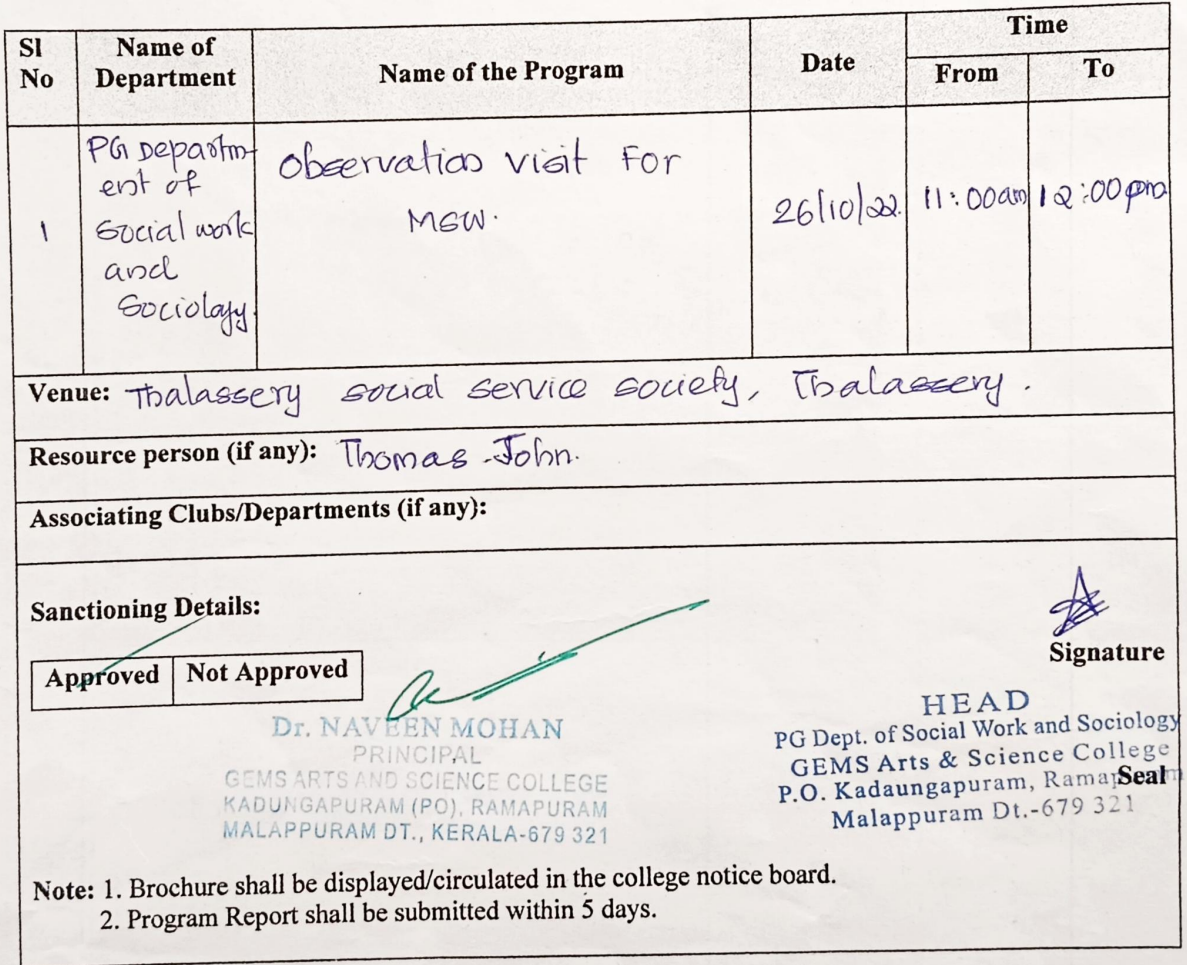 Sl No
Name of Department
Name of the Program
Date
Time
From
To
1
PG Departm-
ent of
Social work
and
Sociology.
Observation visit For
MSW.
26/10/22.
11:00am
12:00pm
Venue: Thalassery social service society, Thalassery.
Resource person (if any): Thomas John.
Associating Clubs/Departments (if any):
Sanctioning Details:
Approved Not Approved
Signature
Dr. NAVEEN MOHAN
PRINCIPAL
GEMS ARTS AND SCIENCE COLLEGE
KADUNGAPURAM (PO), RAMAPURAM
MALAPPURAM DT., KERALA-679 321
HEAD
PG Dept. of Social Work and Sociology
GEMS Arts & Science College
P.O. Kadaungapuram, Ramapuram
Seal
Malappuram Dt.-679 321
Note: 1. Brochure shall be displayed/circulated in the college notice board.
2. Program Report shall be submitted within 5 days.